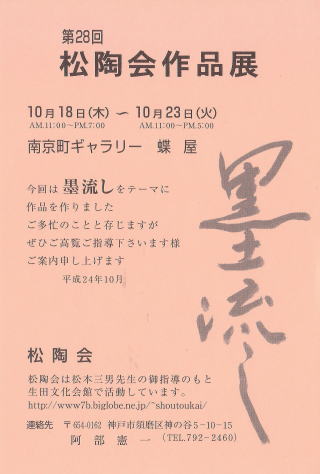 第28回
松陶会作品展
10月18日(木) ～ 10月23日(火)
AM.11:00～PM.7:00 AM.11:00～PM.5:00
南京町ギャラリー 蝶屋
今回は墨流しをテーマに
作品を作りました
ご多忙のことと存じますが
ぜひご高覧ご指導下さいます様
ご案内申し上げます
平成24年10月
墨流し
松陶会
松陶会は松本三男先生の御指導のもと
生田文化会館で活動しています。
http://www7b.biglobe.ne.jp/~shoutoukai/
連絡先 〒654-0162 神戸市須磨区神の谷5-10-15
阿部憲一 (TEL.792-2460)